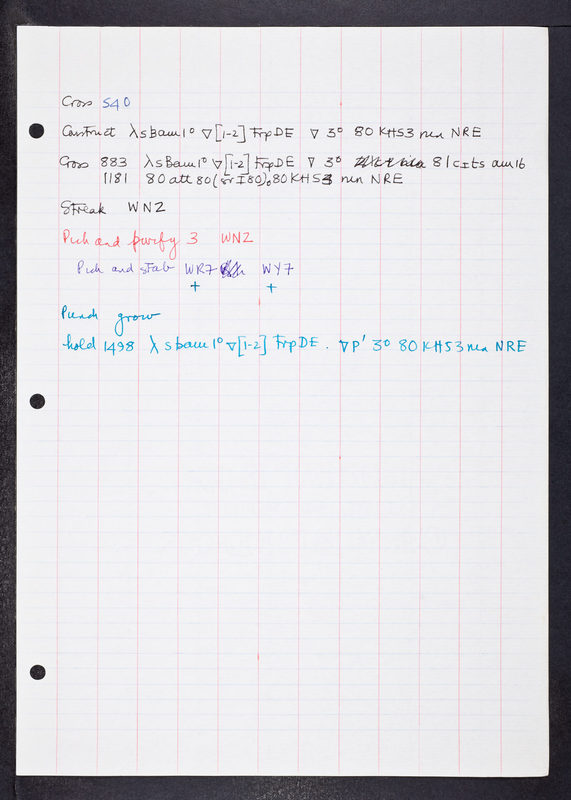 Cross 540
Construct λ s bam 1° ▽ [1-2] TrpDE ▽ 3° 80 KHS3 nin NRE
Cross 883 λ s Bam 1° ▽ [1-2] TrpDE ▽ 3° 81 cIts am 16
1181 80 att 80 (sr I 80)° 80 KHS3 nin NRE
Streak WN2
Pick and purify 3 WN2
Pick and stab WR7 WY7
+ +
Punch grow
hold 1498 λ s bam 1° ▽ [1-2] TrpDE . ▽ P' 3° 80 KHS3 nin NRE